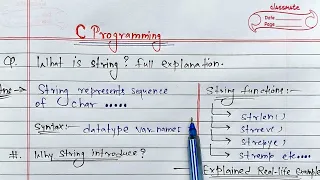 classmate
Date
Page
C Programming
Q. What is string? full explanation.
Ans:- String represents sequence
of char .....
Syntax:- datatype var-names
#. Why String introduce?
String functions:-
strlen()
strrev()
strcpy()
strcmp etc....
Explained Real-life Example